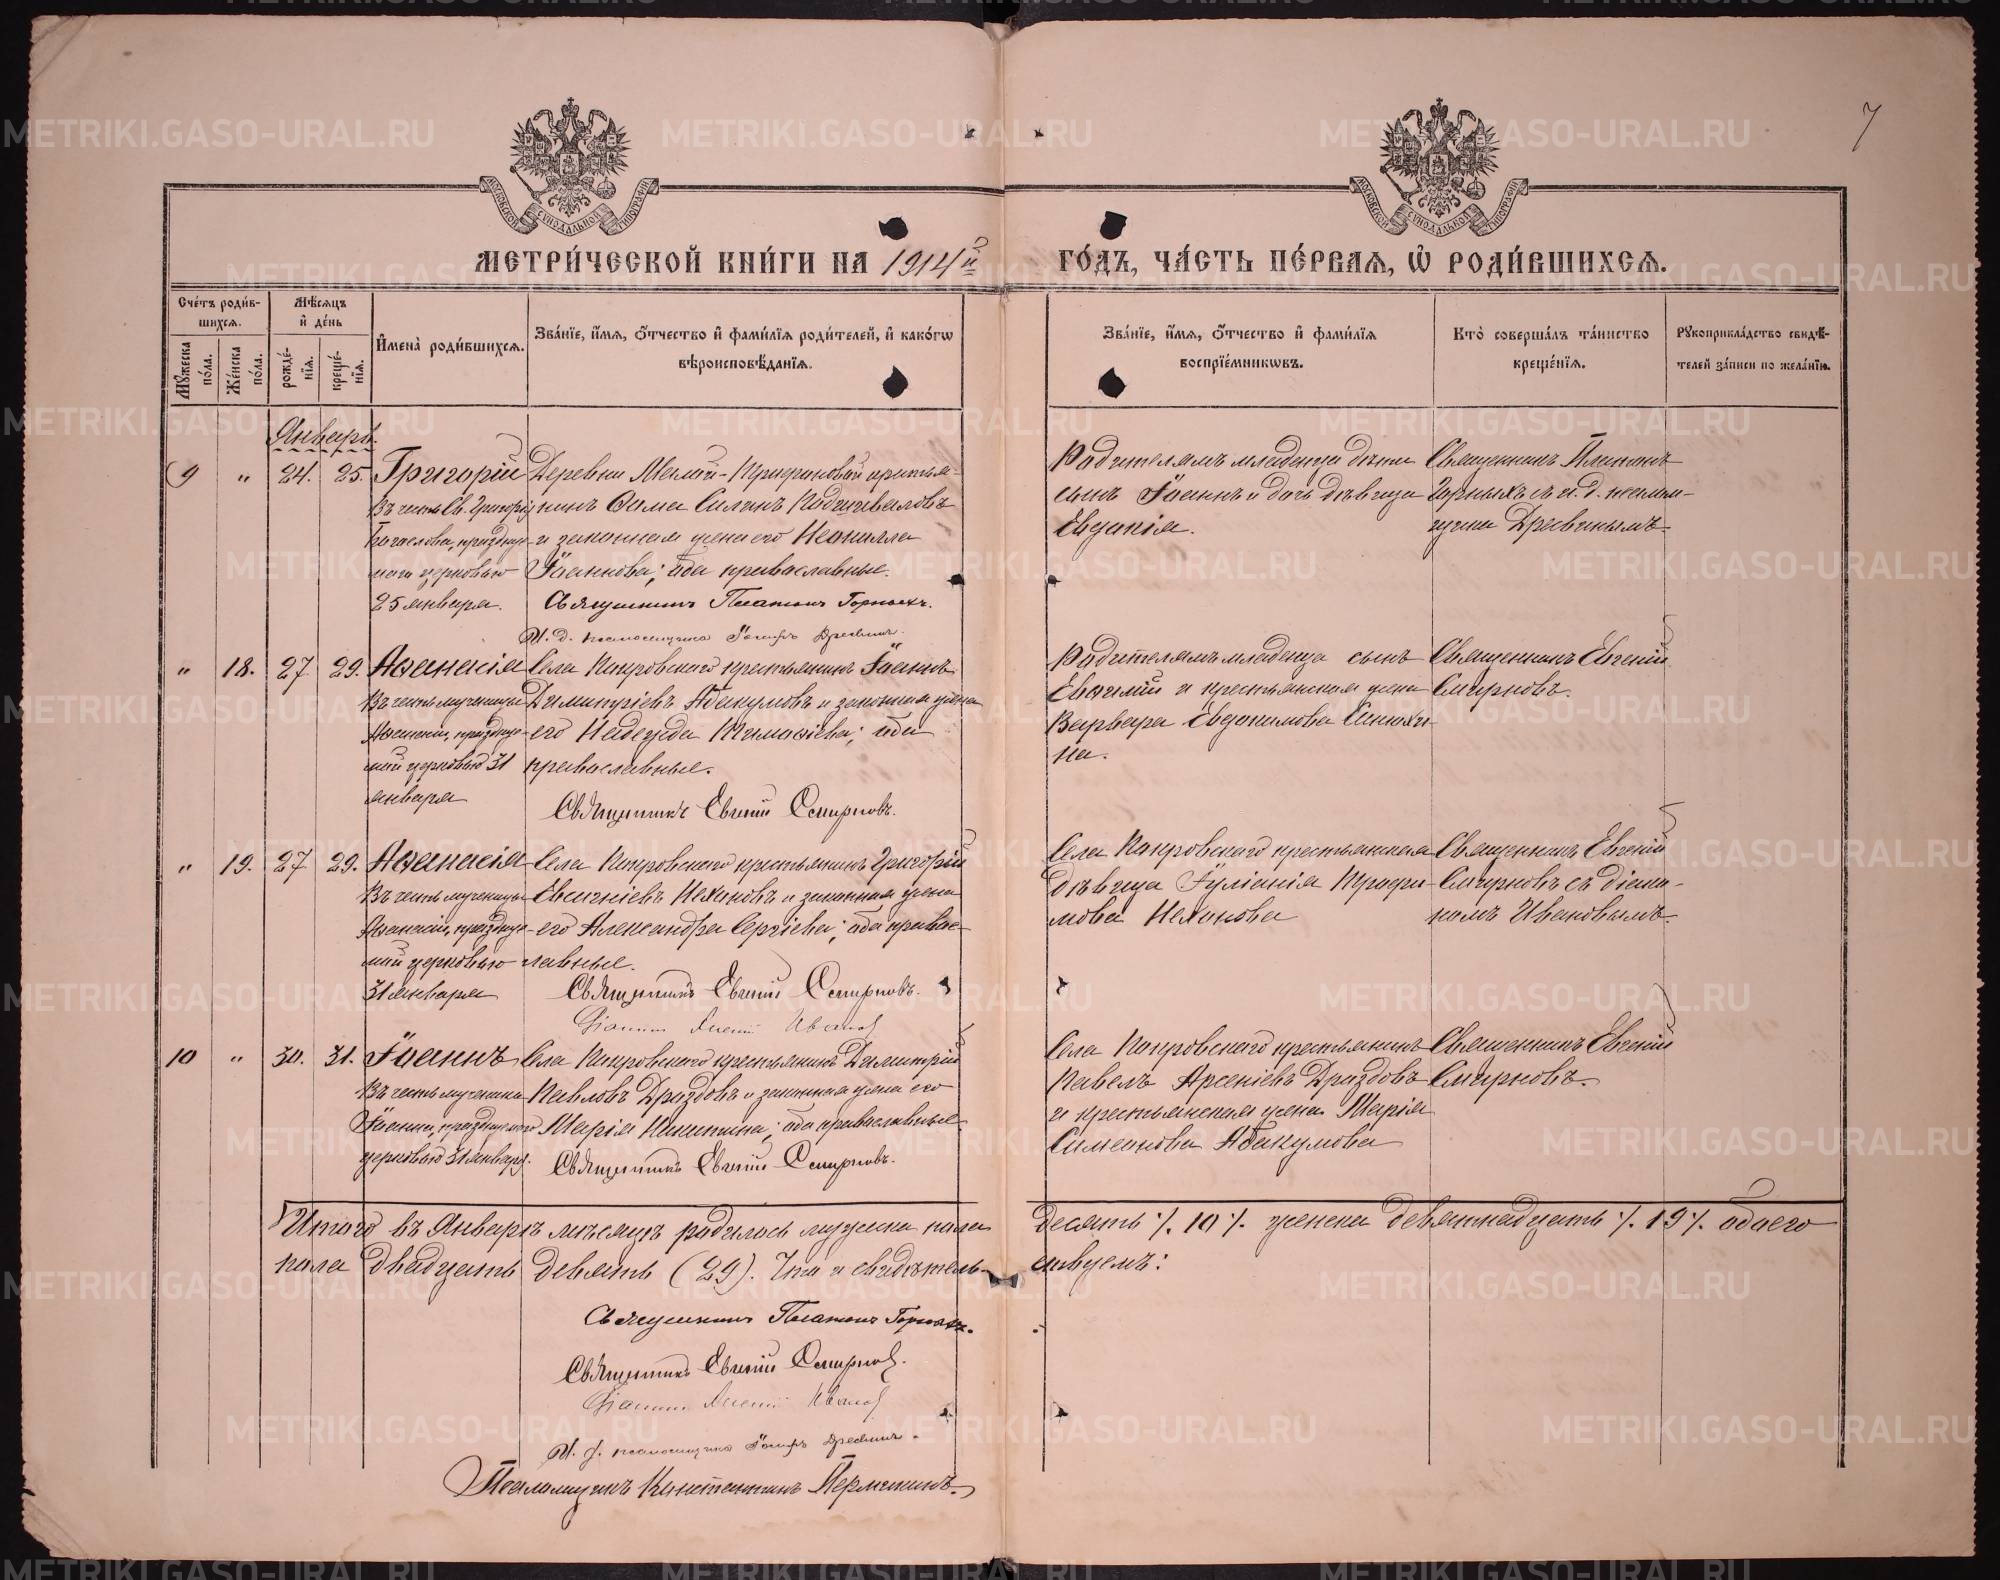 7
МОСКОВСКОЙ СУНОДАЛЬНОЙ ТИПОГРАФІИ
МОСКОВСКОЙ СУНОДАЛЬНОЙ ТИПОГРАФІИ
МЕТРИ́ЧЕСКОЙ КНИ́ГИ НА 1914й ГО́ДЪ, ЧА́СТЬ ПЕ́РВАЯ, Ѽ РОДИ́ВШИХСЯ.
Сче́тъ роди́в-
шихся.
Мѣ́сяцъ
и҆ де́нь
Мꙋ́жеска по́ла.
Же́нска по́ла.
рожде́-
нїя.
креще́-
нїя.
И҆мена̀ роди́вшихся.
Зва́нїе, и҆́мя, ѻ҆́тчество и҆ фами́лїя роди́телей, и҆ како́гѡ
вѣроисповѣ́данїя.
Зва́нїе, и҆́мя, ѻ҆́тчество и҆ фами́лїя
воспрїе́мникѡвъ.
Кто̀ соверша́лъ та́инство
креще́нїя.
Рꙋкоприкла́дство свидѣ́-
телей за́писи по жела́нїю.
Январь.
9 " 24. 25. Григорій
Въ честь Св. Григорія
Богослова, праздну-
маго церковью
25 января.
Деревни Малой- крестья-
нинъ Ѳома Силинъ
и законная жена его Неонилла
Іоаннова; оба православные.
Священникъ Платонъ Горныхъ.
И. д. псаломщика Іосифъ Дресвинъ.
Родителямъ младенца дѣти
сынъ Іоаннъ и дочь дѣвица
Евдокія.
Священникъ Платонъ
Горныхъ съ и. д. псалом-
щика Дресвинымъ.
" 18. 27 29. Аѳанасія
Въ честь мученицы
Аѳанасіи, праздную-
мой церковью 31
января
Села Покровскаго крестьянинъ Іоаннъ
Димитріевъ Абакумовъ и законная жена
его Надежда Тимоѳіева; оба
православные.
Священникъ Евгеній Смирновъ.
Родителямъ младенца сынъ
и крестьянская жена
Варвара Евдокимова Синюхи-
на.
Священникъ Евгеній
Смирновъ.
" 19. 27 29. Аѳанасія
Въ честь мученицы
Аѳанасіи, праздную-
мой церковью
31 января
Села Покровскаго крестьянинъ Григорій
Евсигніевъ Нехоновъ и законная жена
его Александра Сергіева; оба право-
славные.
Священникъ Евгеній Смирновъ.
Діаконъ Иванов
Села Покровскаго крестьянская
дѣвица Іуліанія Трофи-
мова Нехонова
Священникъ Евгеній
Смирновъ съ діако-
номъ Ивановымъ.
10 " 30. 31. Іоаннъ
Въ честь мученика
Іоанна, празднуемаго
церковью 31 января.
Села Покровскаго крестьянинъ Димитрій
Павловъ Дроздовъ и законная жена его
Марія Никитина; оба православные
Священникъ Евгеній Смирновъ.
Села Покровскаго крестьянинъ
Павелъ Арсеніевъ Дроздовъ
и крестьянская жена Марія
Симеонова Абакумова
Священникъ Евгеній
Смирновъ.
Итого въ Январѣ мѣсяцѣ родилось мужска пола десять ٪ 10 ٪. женска девятнадцать ٪ 19 ٪. обоего
пола двадцать девять (29). Что и свидѣтель- ствуемъ:
Священникъ Платонъ Горныхъ.
Священникъ Евгеній Смирнов.
Діаконъ Иванов
И. д. псаломщика Іосифъ Дресвинъ.
Псаломщикъ Константинъ Пермякинъ.
METRIKI.GASO-URAL.RU